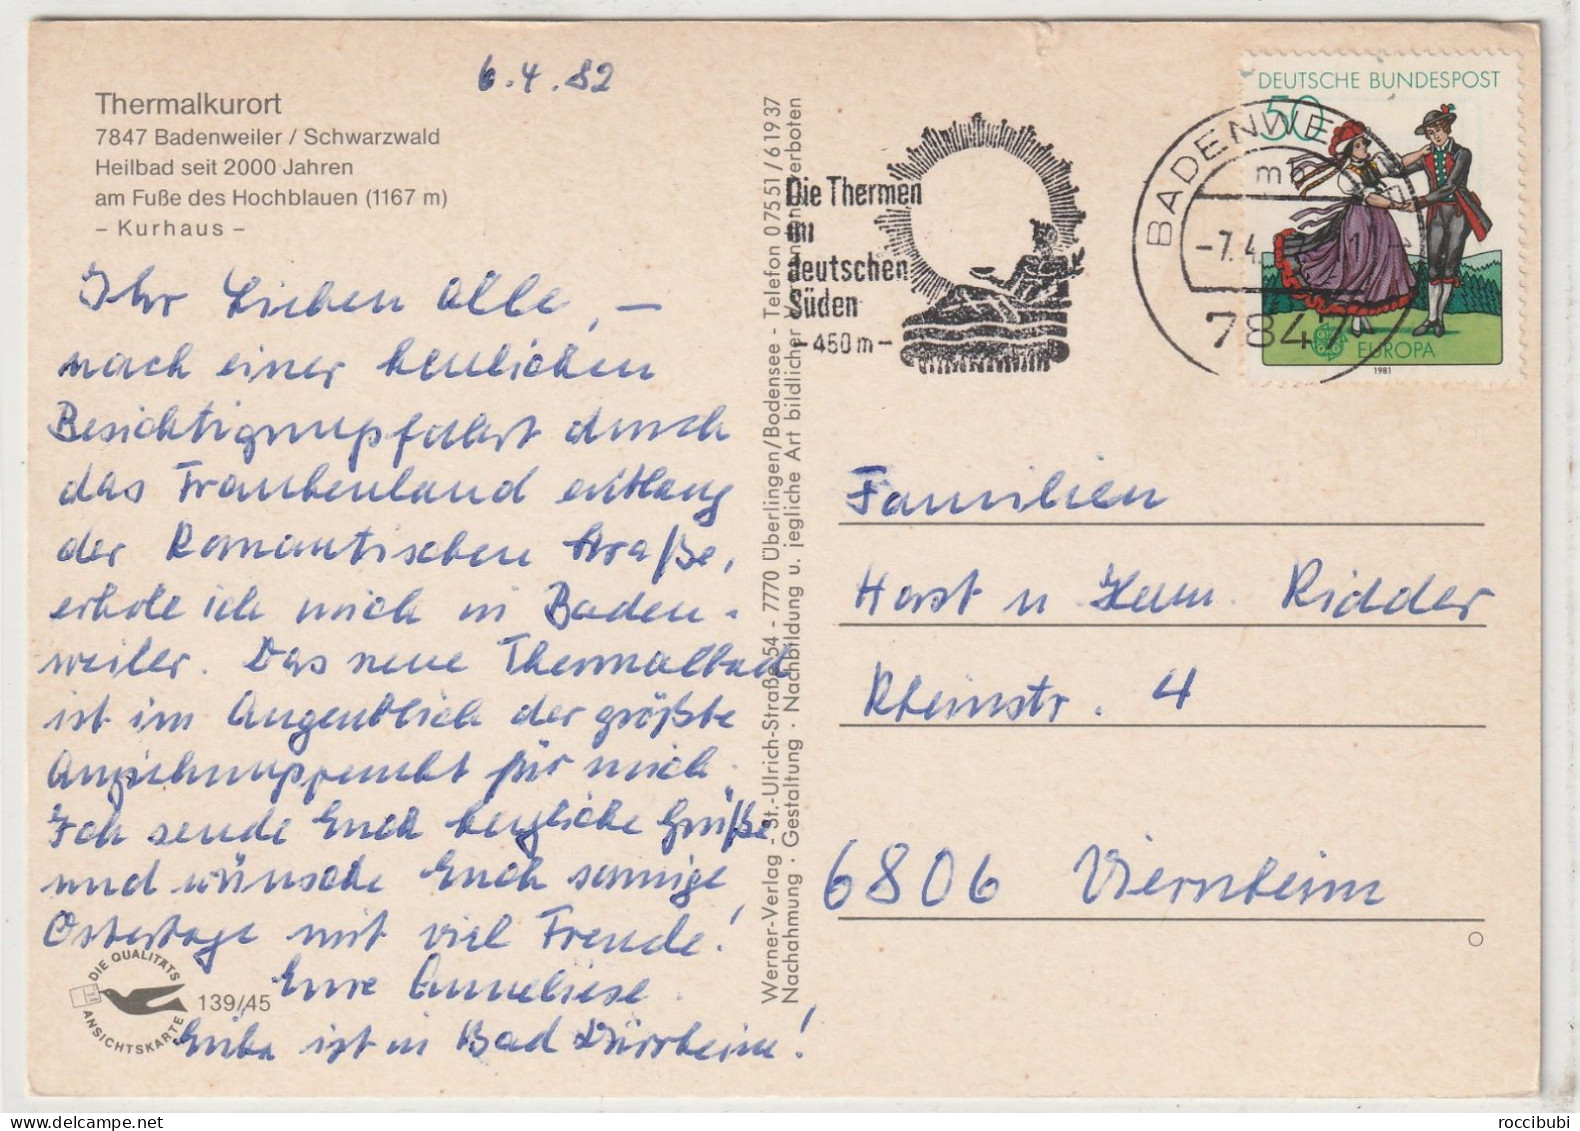 6.4.82
Thermalkurort
7847 Badenweiler / Schwarzwald
Heilbad seit 2000 Jahren
am Fuße des Hochblauen (1167 m)
– Kurhaus –
Ihr Lieben alle, –
nach einer herrlichen
Besichtigungsfahrt durch
das Frankenland entlang
der Romantischen Straße,
erhole ich mich in Baden-
weiler. Das neue Thermalbad
ist im Augenblick der größte
Anziehungspunkt für mich.
Ich sende Euch herzliche Grüße
und wünsche Euch sonnige
Ostertage mit viel Freude!
Eure Anneliese.
ist in Bad Dürrheim!
DIE QUALITÄTS
ANSICHTSKARTE
139/45
Werner-Verlag - St.-Ulrich-Straße 54 - 7770 Überlingen/Bodensee - Telefon 07551/61937
Nachahmung · Gestaltung · Nachbildung u. jegliche Art bildlicher verboten
Die Thermen
im
deutschen
Süden
-450m-
BADENWE
mb
-7.4.
7847
DEUTSCHE BUNDESPOST
50
EUROPA
1981
Familien
Horst u Ridder
Rheinstr. 4
6806 Viernheim
roccibubi